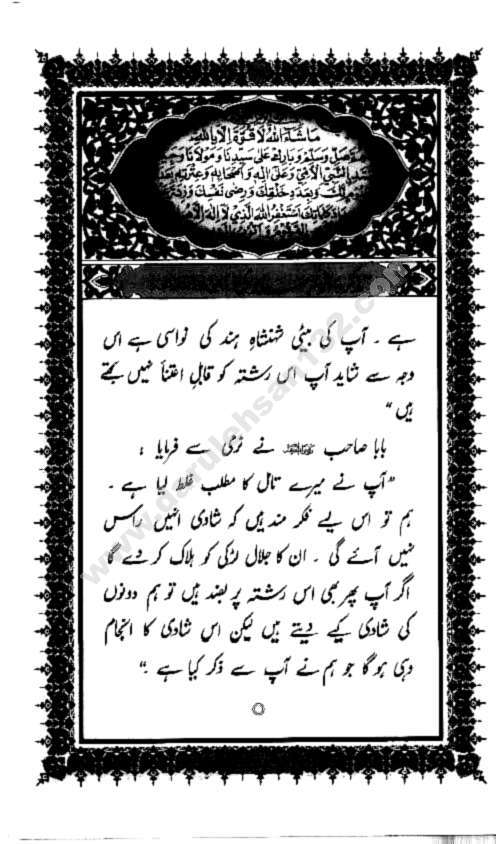 ماشاء الله لا قوة الا بالله
صل وسلم وبارك على سيدنا ومولانا
النبي الامي وعلى اله واصحابه وعترته بعدد
وبعدد خلقك ورضى نفسك وزنة
كلماتك استغفر الله الذي لا اله الا هو
ہے ۔ آپ کی بیٹی شہنشاہِ ہند کی نواسی ہے اس
وجہ سے شاید آپ اس رشتہ کو قابلِ اعتنأ نہیں سمجھتے
ہیں"
بابا صاحب نے نرمی سے فرمایا :
"آپ نے میرے تامل کا مطلب غلط لیا ہے ۔
ہم تو اس لیے فکر مند ہیں کہ شادی انہیں راس
نہیں آئے گی ۔ ان کا جلال لڑکی کو ہلاک کر دے گا
اگر آپ پھر بھی اس رشتہ پر بضد ہیں تو ہم دونوں
کی شادی کیے دیتے ہیں لیکن اس شادی کا انجام
وہی ہو گا جو ہم نے آپ سے ذکر کیا ہے ۔"
www.darulehsan132.com